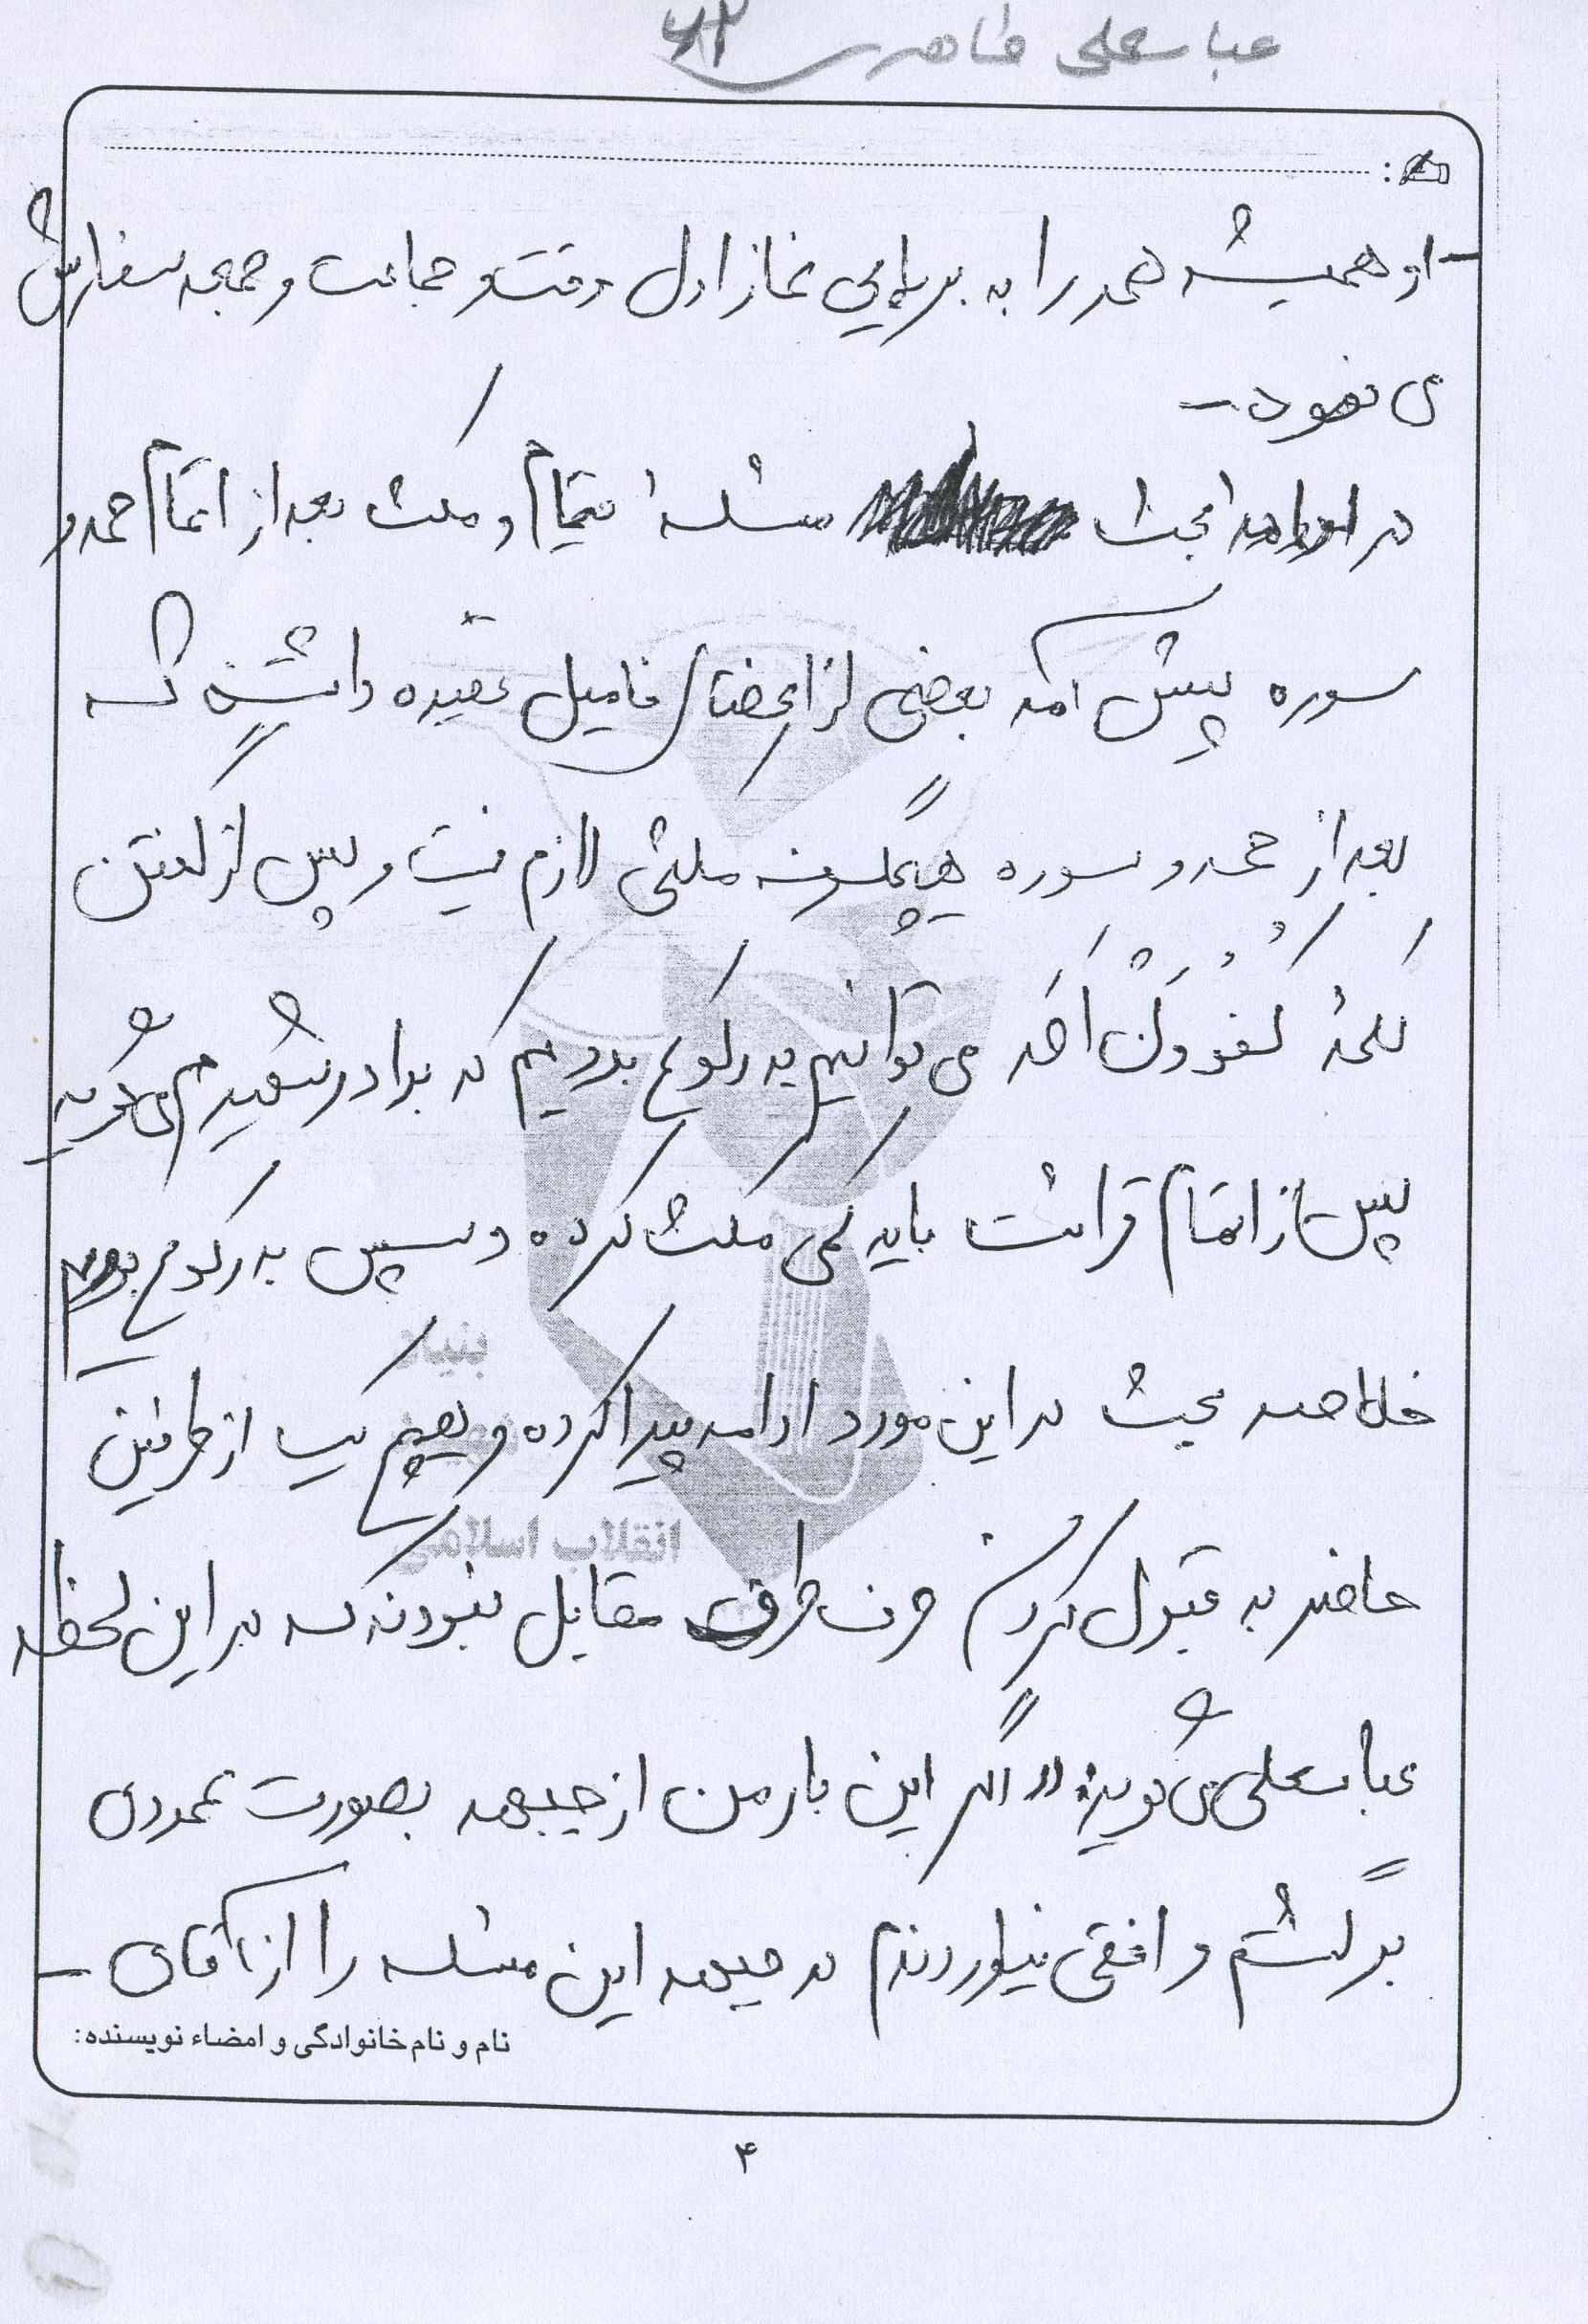 عباسعلی طاهری ۶۲
- او همیشه همه را به برپایی نماز اول وقت و جماعت و جمعه سفارش
می نمود -
در ادامه بحث مسئله قیام و مکث بعد از اتمام حمد و
سوره پیش آمد بعضی از اعضای فامیل عقیده داشتند که
بعد از حمد و سوره هیچگونه مکثی لازم نیست و پس از گفتن
کلمۀ کُفُوَاً اَحَد می توانیم به رکوع برویم که برادر شهیدم می گوید
پس از اتمام قرائت باید کمی مکث کرده و سپس به رکوع برویم
خلاصه بحث در این مورد ادامه پیدا کرده و هیچ یک از طرفین
حاضر به قبول کردن حرف طرف مقابل نبودند که در این لحظه
عباسعلی می گوید: «اگر این بار من از جبهه بصورت عمودی
برگشتم و افقی نیاوردندم در جبهه این مسئله را از آقای -
نام و نام خانوادگی و امضاء نویسنده:
۴
بنیاد
انقلاب اسلامی